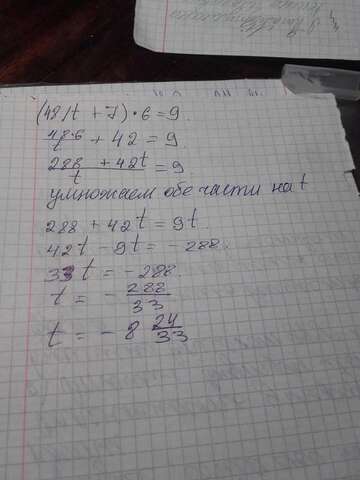 (48/t + 7)·6=9
48·6/t + 42 = 9
288 + 42t/t = 9
умножаем обе части на t
288 + 42t = 9t
42t - 9t = - 288
33t = - 288
t = - 288/33
t = - 8 24/33